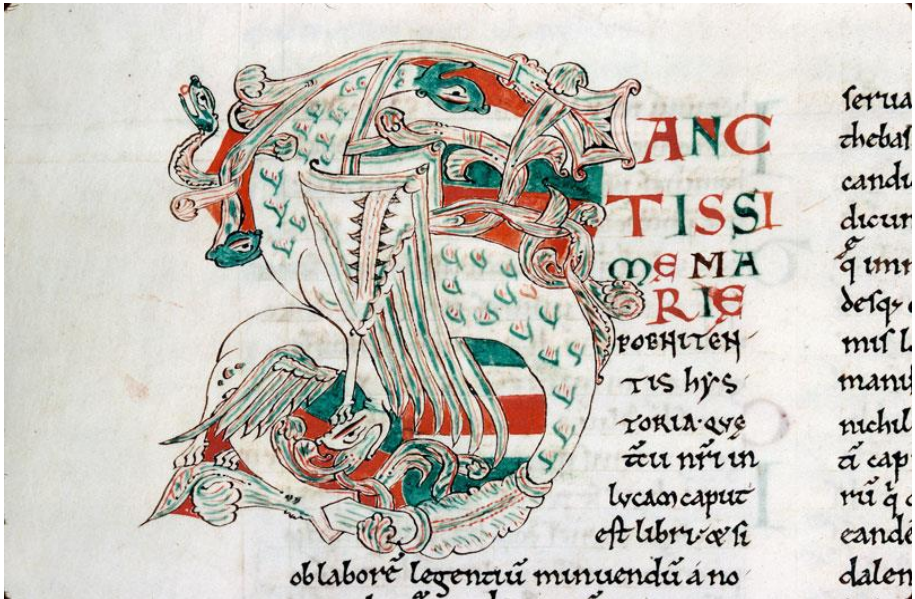 SANC
TISSI
ME MA
RIĘ
POENITEN
TIS hYS
TORIA·QVĘ
t̄cii nr̄i in
lucam caput
est libri·& si
ob laborē legentiū minuendū á no
serua
thebas
candi
dicun
desq;
mis
manu
nichil
eande
dalen